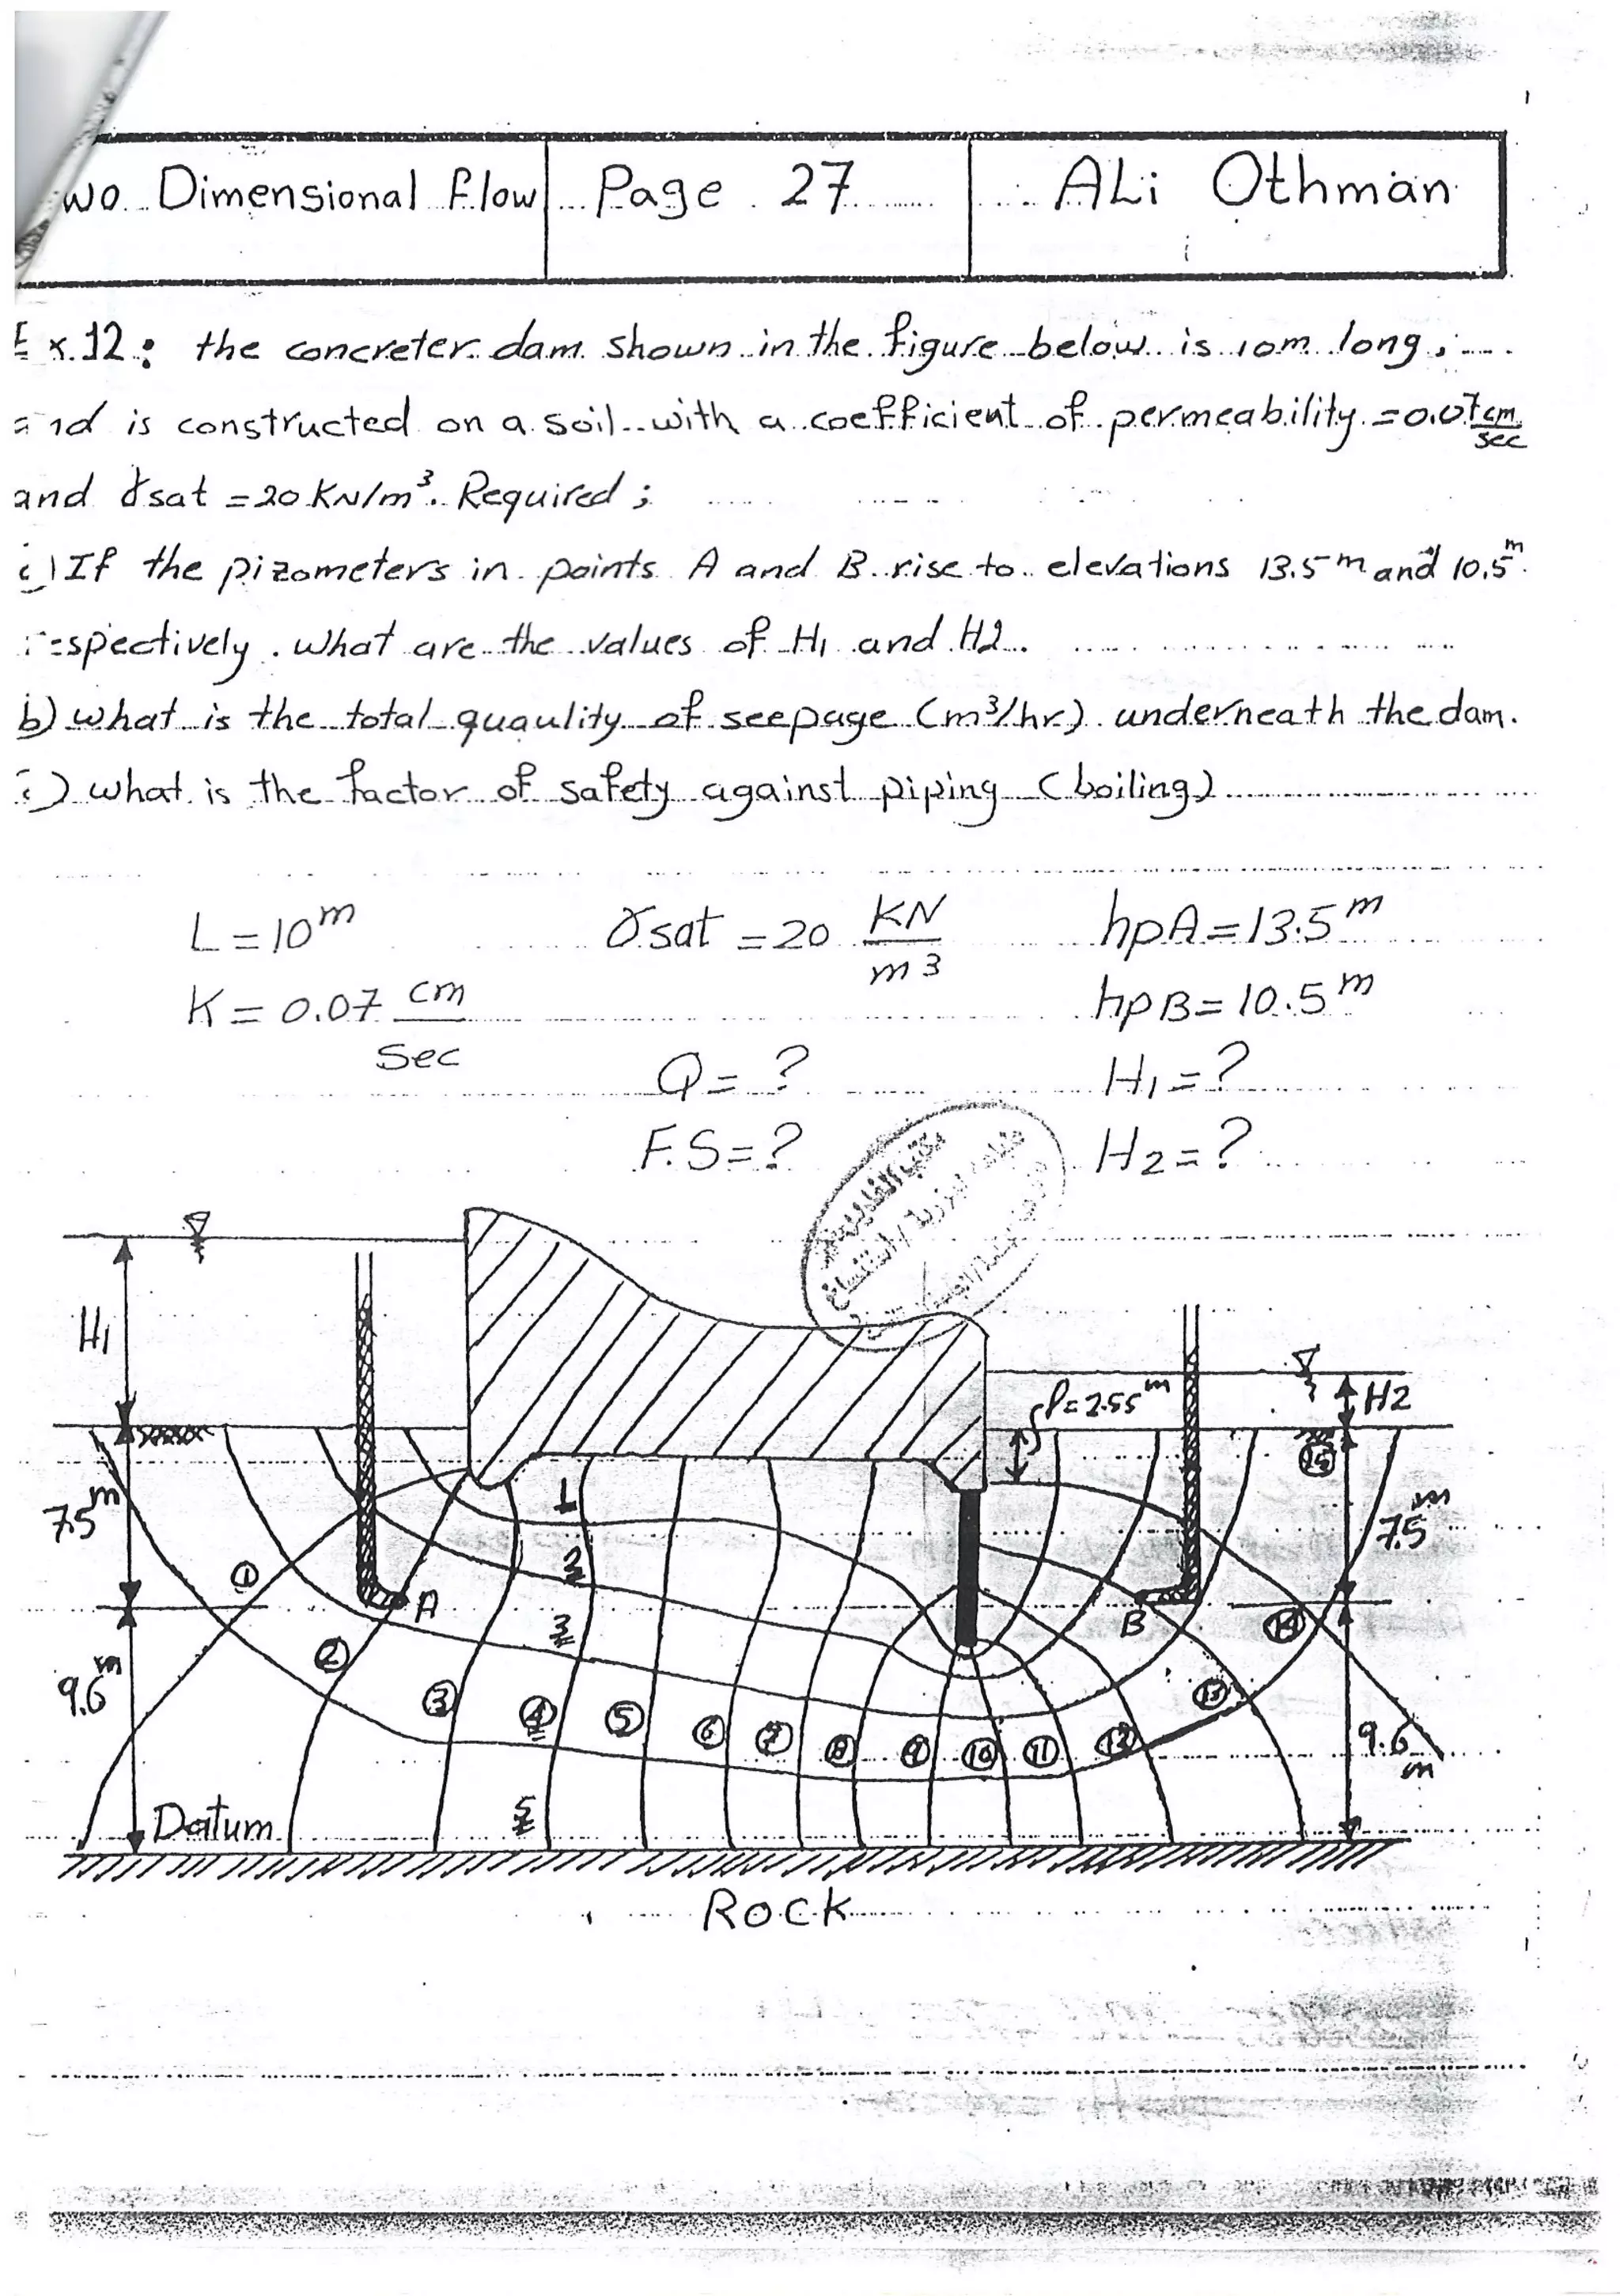 wo Dimensional flow Page 27 ALi Othman
Ex.12: the concreter dam shown in the figure below is 10m long,
and is constructed on a soil with a coefficient of permeability = 0.07 cm/sec
and γsat = 20 KN/m³. Required;
If the pizometers in points A and B rise to elevations 13.5 m and 10.5 m
respectively. what are the values of H1 and H2.
b) what is the total quaulity of seepage (m³/hr) underneath the dam.
) what is the factor of safety against piping (boiling)
L = 10 m γsat = 20 KN/m3 hpA = 13.5 m
K = 0.07 cm/sec hpB = 10.5 m
Q = ? H1 = ?
F.S = ? H2 = ?
H1
l = 2.55 m
H2
15
7.5 m
7.5 m
1
2
3
A
B
1
2
3
4
5
6
7
8
9
10
11
12
13
14
9.6 m
9.6 m
5
Datum
ROCK